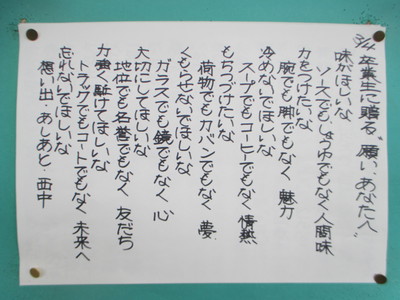 3/14 卒業生に贈る〝願い・あなたへ〟
味がほしいな
ソースでもしょうゆでもなく人間味
力をつけたいな
腕でも脚でもなく 魅力
冷めないでほしいな
スープでもコーヒーでもなく 情熱
もちつづけたいな
荷物でもカバンでもなく 夢
くもらせないでほしいな
ガラスでも鏡でもなく 心
大切にしてほしいな
地位でも名誉でもなく 友だち
力強く駈けてほしいな
トラックでもコートでもなく 未来へ
忘れないでほしいな
想い出・あしあと・西中